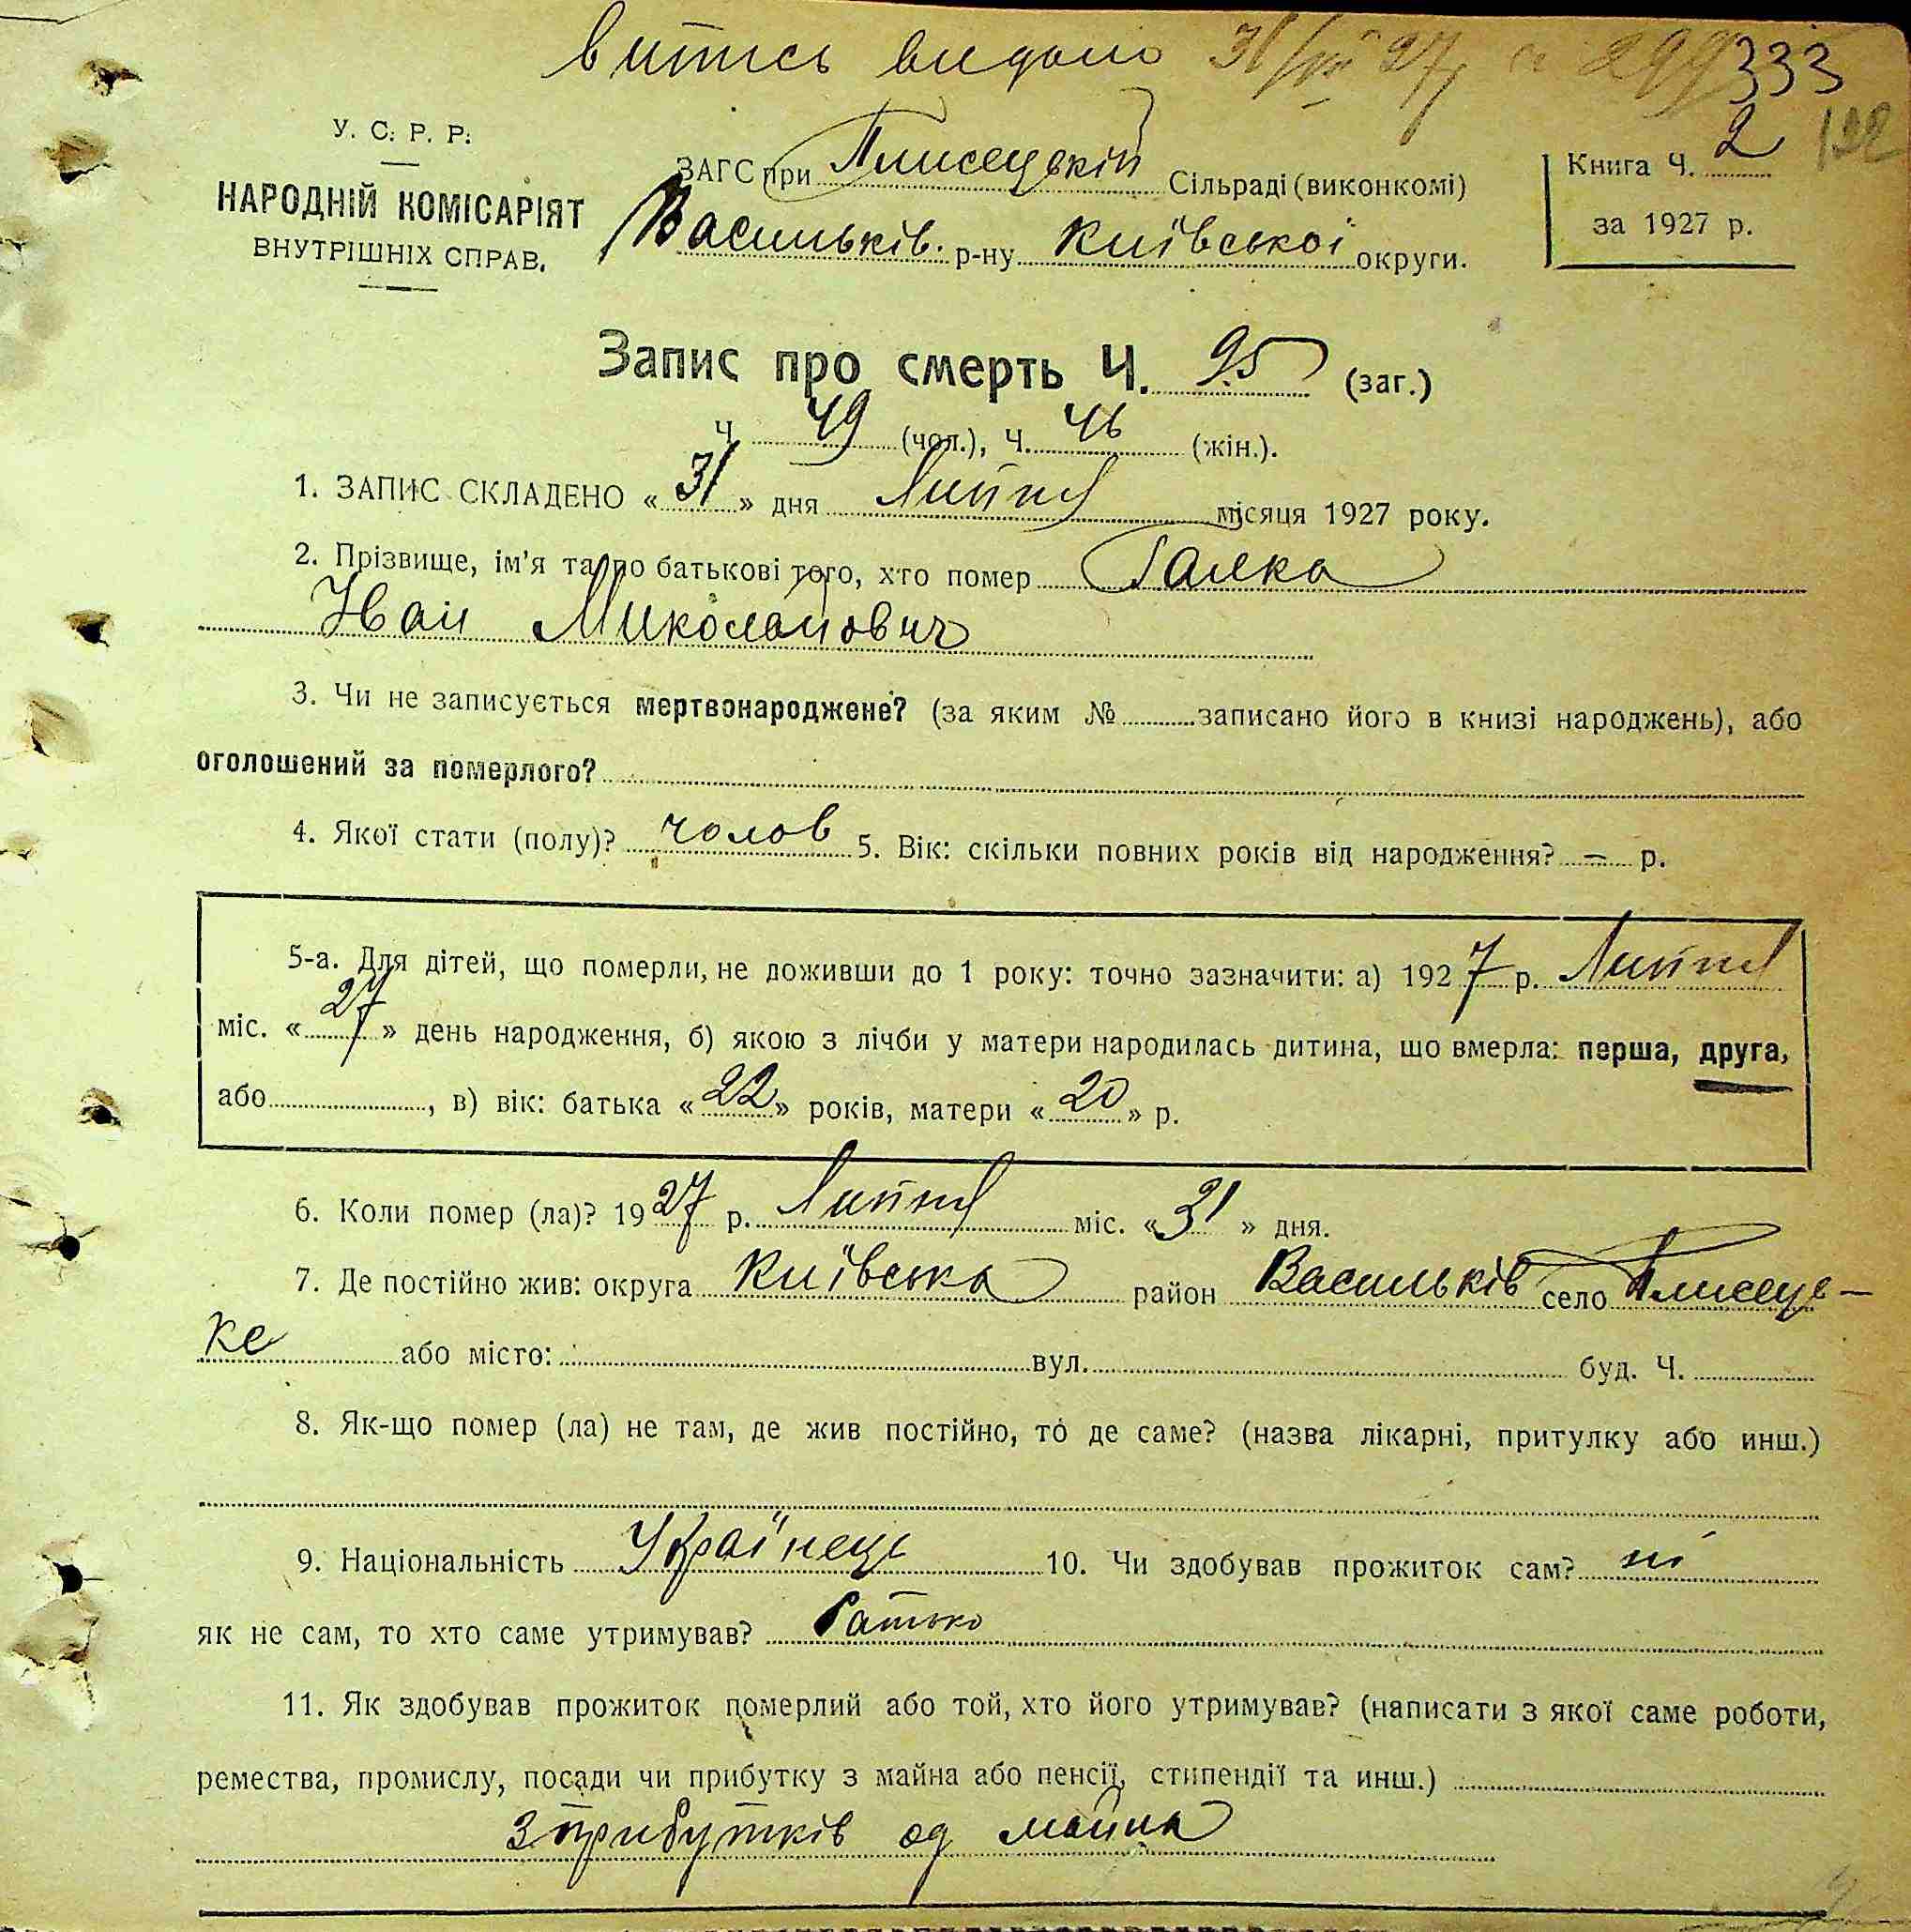 витись видано 31/VII 27 р № 299 333
122
У. С. Р. Р.
НАРОДНІЙ КОМІСАРІЯТ
ВНУТРІШНІХ СПРАВ.
ЗАГС при Плисецькій Сільраді (виконкомі)
Васильків. р-ну Київської округи.
Книга Ч. 2
за 1927 р.
Запис про смерть Ч. 95 (заг.)
Ч 49 (чол.), Ч. 46 (жін.).
1. ЗАПИС СКЛАДЕНО « 31 » дня Липня місяця 1927 року.
2. Прізвище, ім'я та по батькові того, хто помер Галка
Иван Миколайович
3. Чи не записується мертвонароджене? (за яким № записано його в книзі народжень), або
оголошений за померлого?
4. Якої стати (полу)? чолов 5. Вік: скільки повних років від народження? — р.
5-а. Для дітей, що померли, не доживши до 1 року: точно зазначити: а) 1927 р. Липня
міс. « 27 » день народження, б) якою з лічби у матери народилась дитина, що вмерла: перша, друга,
або , в) вік: батька « 22 » років, матери « 20 » р.
6. Коли помер (ла)? 1927 р. Липня міс. « 31 » дня.
7. Де постійно жив: округа Київська район Васильків село Плисець-
ке або місто: вул. буд. Ч.
8. Як-що помер (ла) не там, де жив постійно, то де саме? (назва лікарні, притулку або инш.)
9. Національність Українець 10. Чи здобував прожиток сам? ні
як не сам, то хто саме утримував? Батько
11. Як здобував прожиток померлий або той, хто його утримував? (написати з якої саме роботи,
ремества, промислу, посади чи прибутку з майна або пенсії, стипендії та инш.)
з прибутків од майна